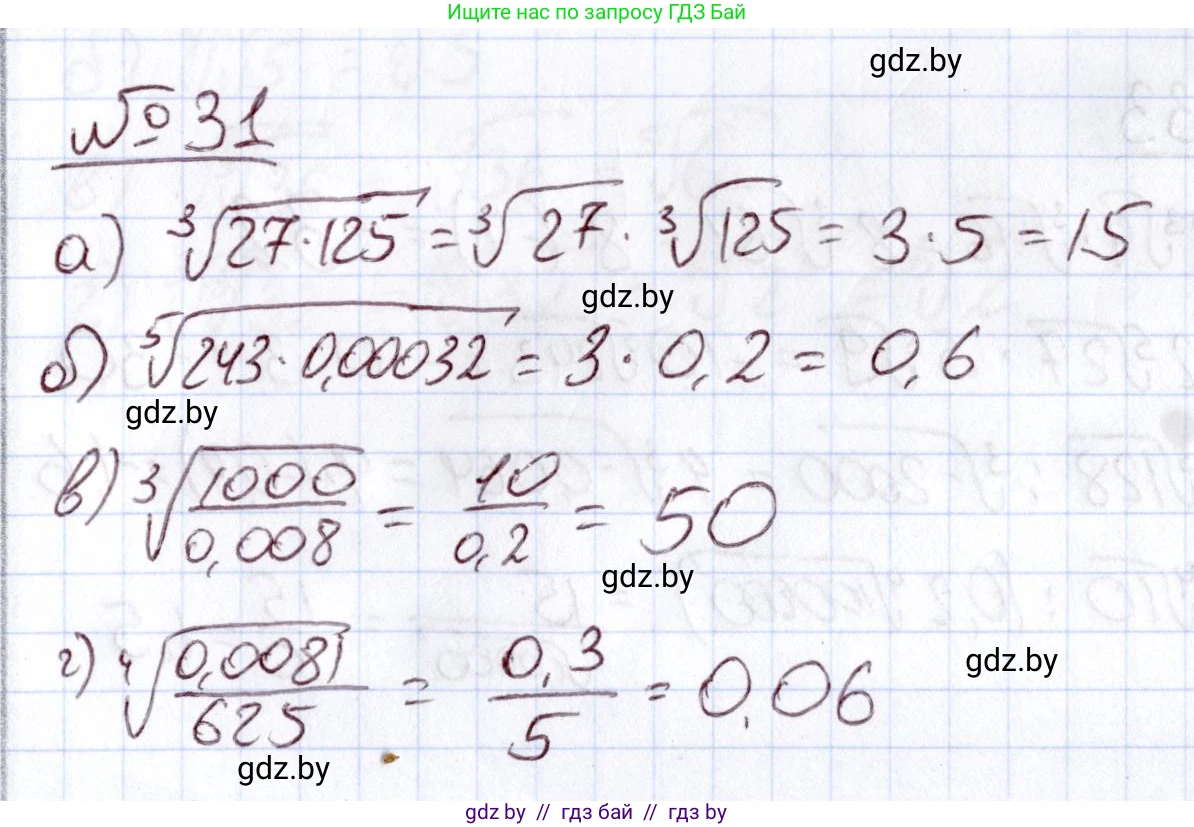 Ищите нас по запросу ГДЗ Бай
gdz.by
№ 31
а) ∛(27·125) = ∛27 · ∛125 = 3·5 = 15
gdz.by
б) ⁵√(243·0,00032) = 3·0,2 = 0,6
gdz.by
в) ∛(1000/0,008) = 10/0,2 = 50
gdz.by
г) ⁴√(0,0081/625) = 0,3/5 = 0,06
gdz.by
gdz.by
gdz by // гдз бай // гдз by